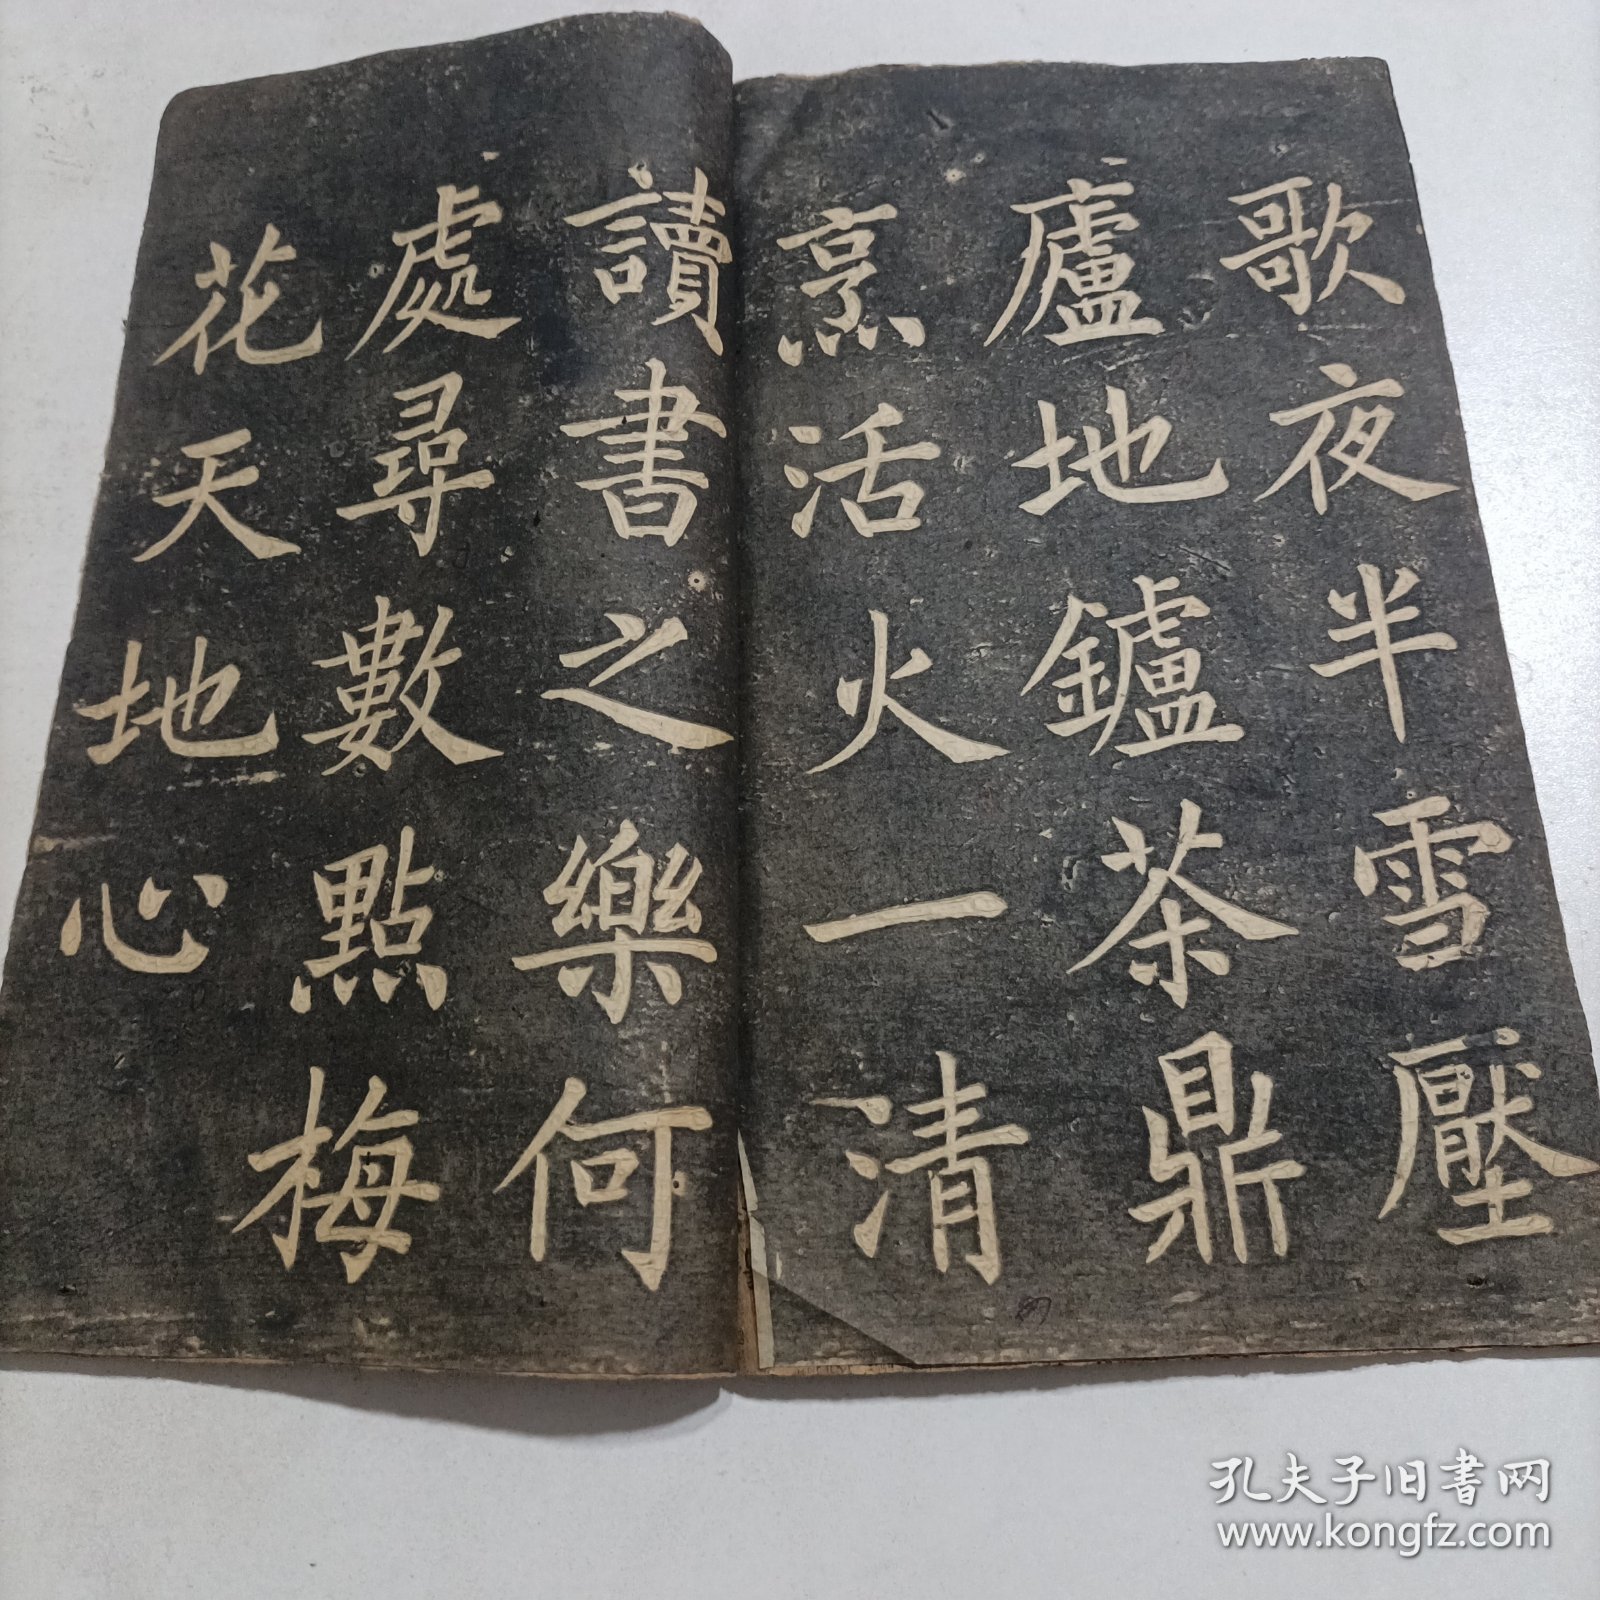 歌夜半雪壓
廬地鑪茶鼎
烹活火一清
讀書之樂何
處尋數點梅
花天地心
孔夫子旧书网
www.kongfz.com